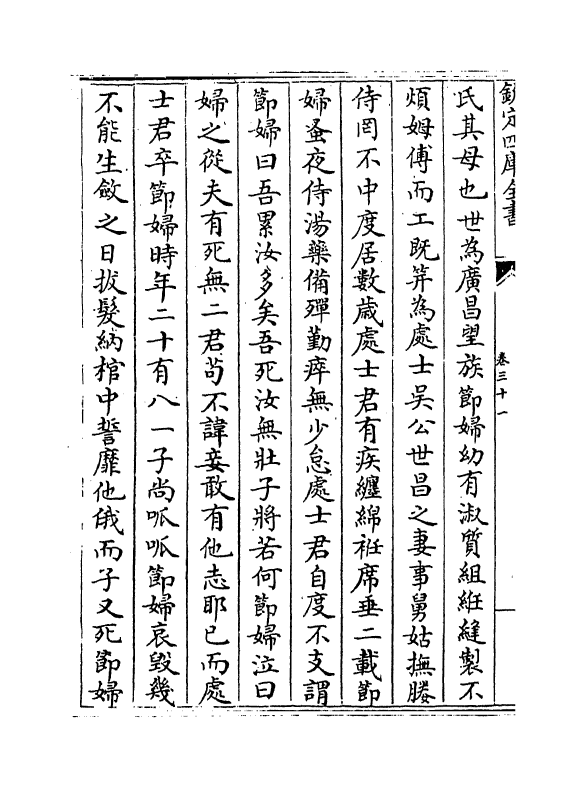 欽定四庫全書
卷三十一
氏其母也世為廣昌望族節婦幼有淑質組紝縫製不
煩姆傅而工既笄為處士吳公世昌之妻事舅姑撫媵
侍罔不中度居數歲處士君有疾纏綿袵席垂二載節
婦蚤夜侍湯藥備殫勤瘁無少怠處士君自度不支謂
節婦曰吾累汝多矣吾死汝無壯子將若何節婦泣曰
婦之從夫有死無二君苟不諱妾敢有他志耶已而處
士君卒節婦時年二十有八一子尚呱呱節婦哀毀幾
不能生斂之日拔髮納棺中誓靡他俄而子又死節婦